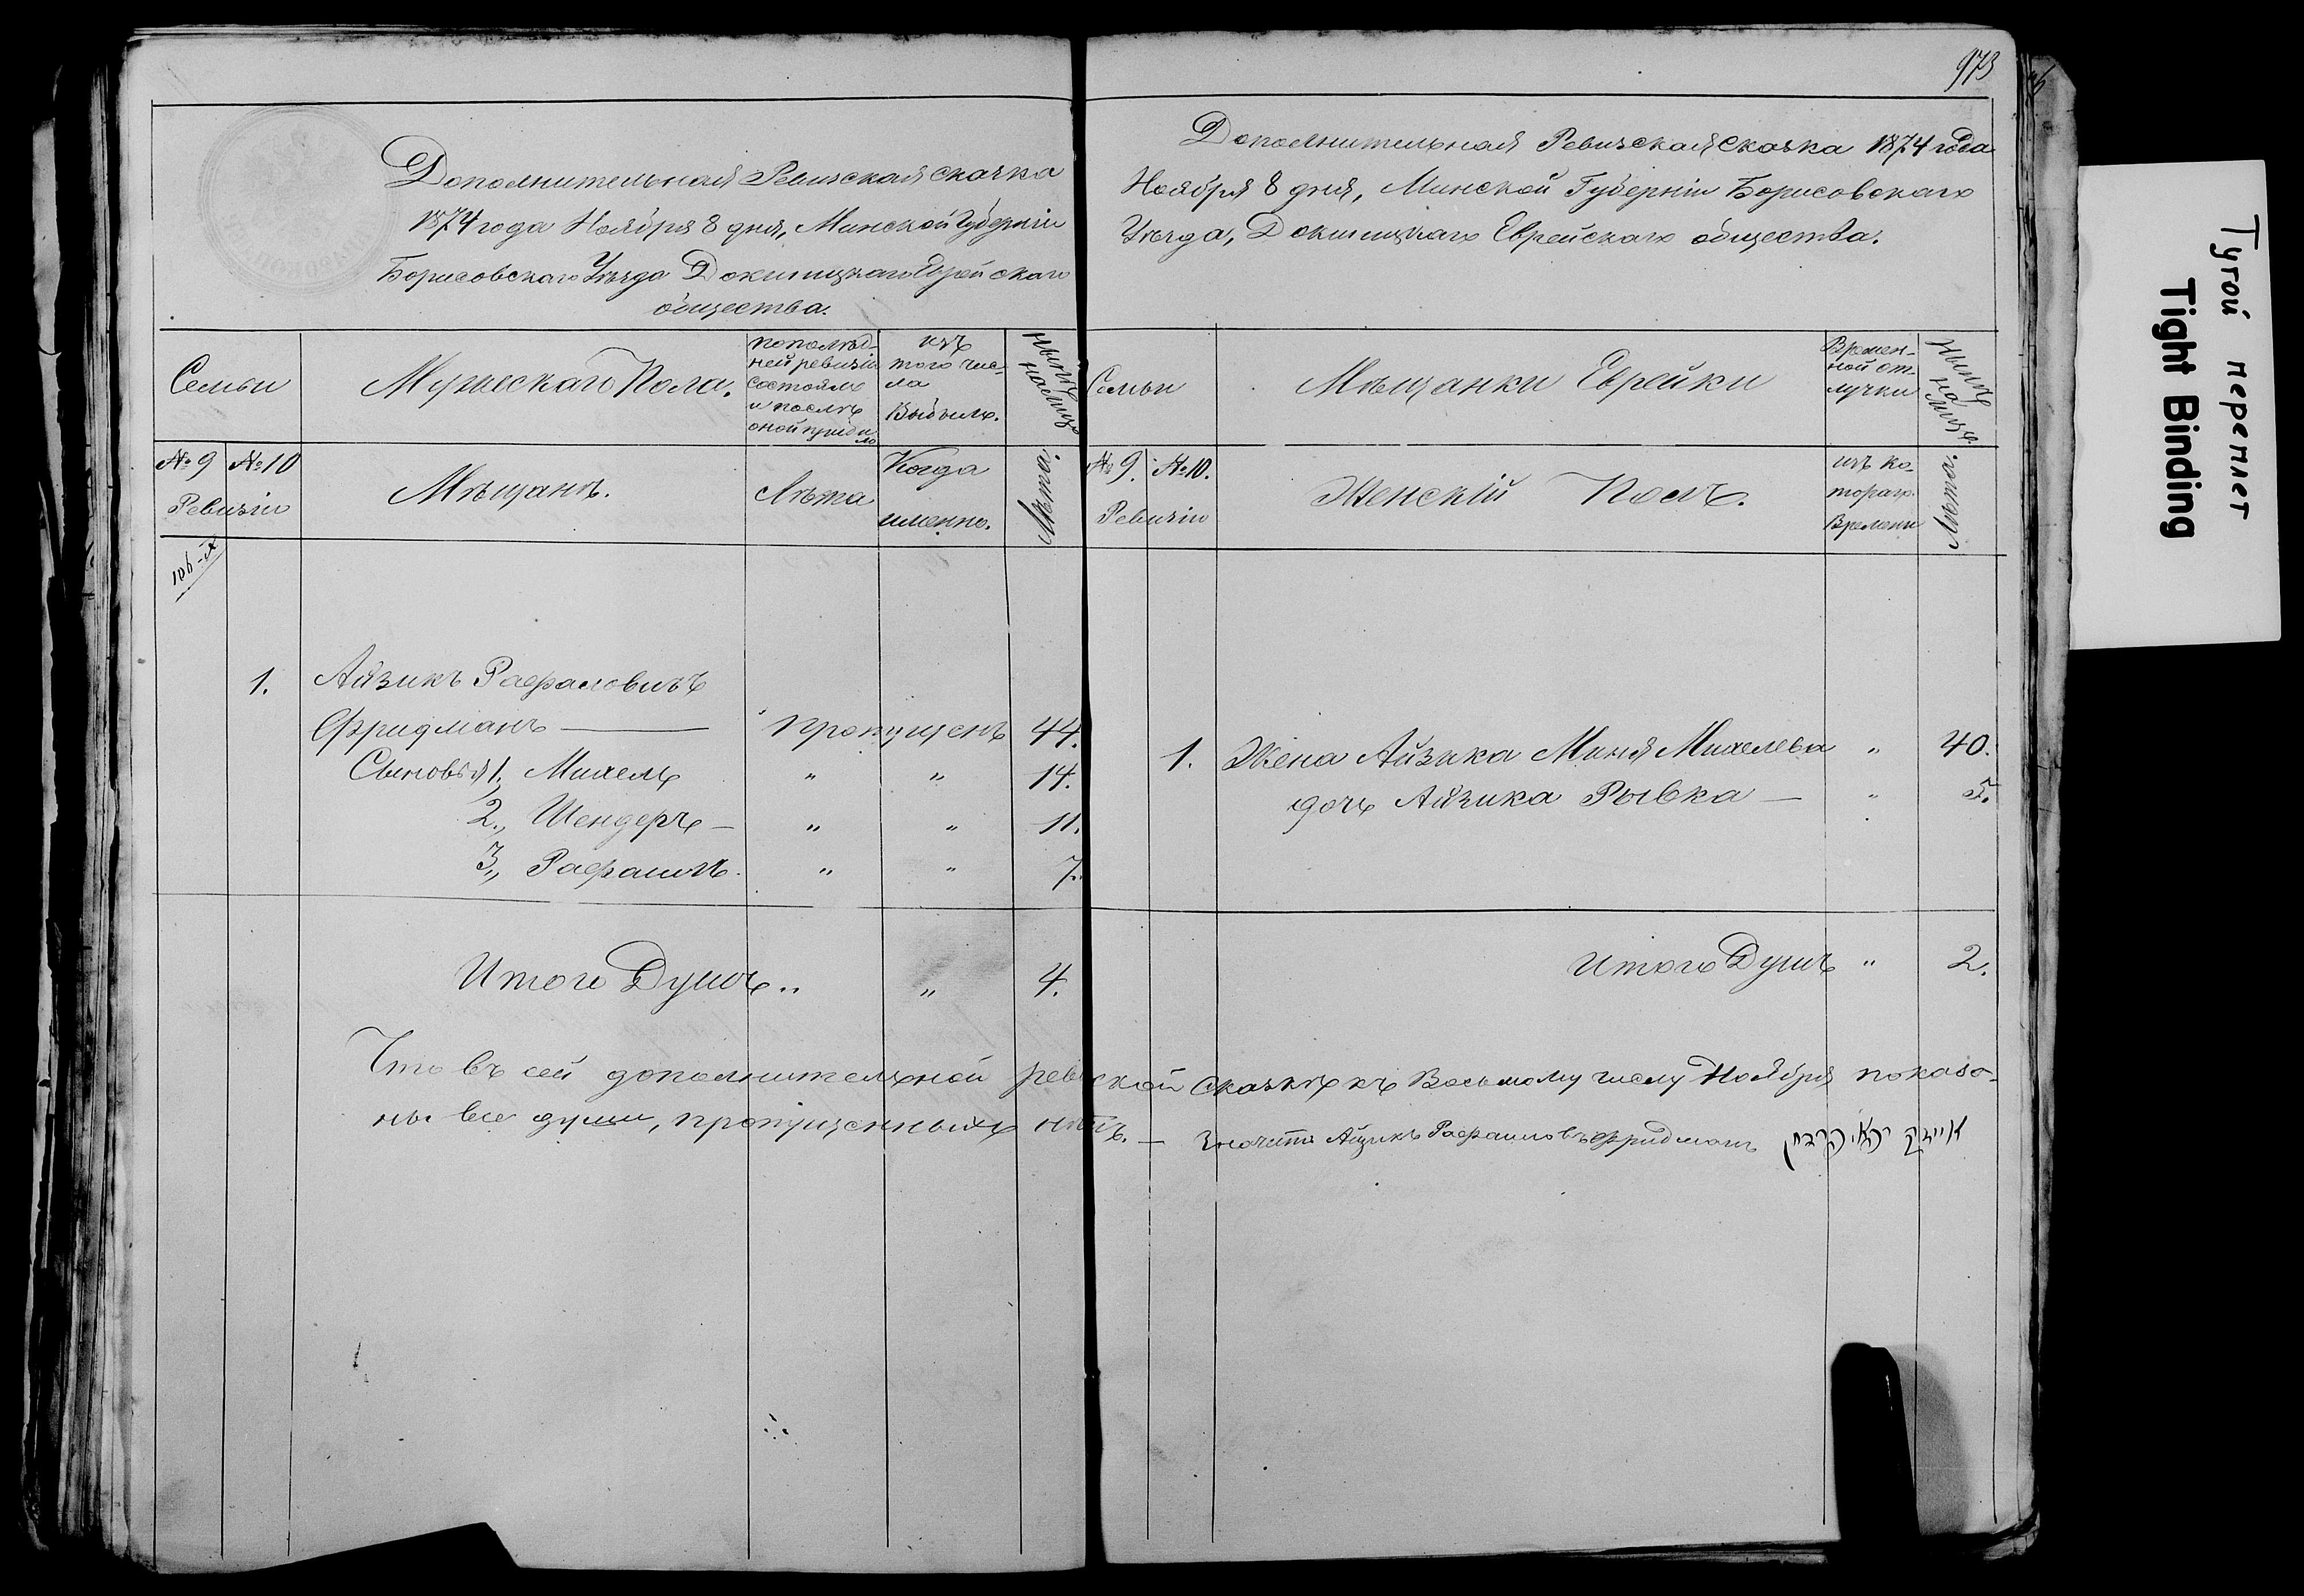 Дополнительная Ревизская сказка
1874 года Ноября 8 дня, Минской Губерніи
Борисовскаго Уѣзда Докшицкаго Еврейскаго
общества.
Семьи
Мужескаго Пола.
по послѣд-
ней ревизіи
состояло
и послѣ
оной прибы
ло
изъ
того чис-
ла
Выбыло.
Нынѣ
на лицо
№ 9 № 10
Ревизіи
Мѣщанъ.
Лѣта
Когда
именно.
Лѣта.
1. Айзикъ Рафаловичъ
Фридманъ — пропущенъ 44.
Сыновья 1, Михель " " 14.
2., Шендеръ — " " 11.
3., Рафаилъ. " " 7.
Итого Душъ " " 4.
973
Дополнительная Ревизская Сказка 1874 года
Ноября 8 дня, Минской Губерніи Борисовскаго
Уѣзда, Докшицкаго Еврейскаго общества.
Семьи
Мѣщанки Еврейки
Времен-
ной от-
лучки
Нынѣ
на
лицо.
№ 9. № 10.
Ревизіи
Женскій Полъ.
изъ ко-
тораго
Времени
Лѣта.
1. Жена Айзика Миня Михелева " 40.
дочь Айзика Рывка — " 5.
Итого Душъ " 2.
Что въ сей дополнительной ревской Сказкѣ къ Восьмому числу Ноября показа-
ны все души, пропущенныхъ нѣтъ. — Значитъ Айзикъ Рафаиловъ Фридманъ אייזיק
Тугой переплет
Tight Binding